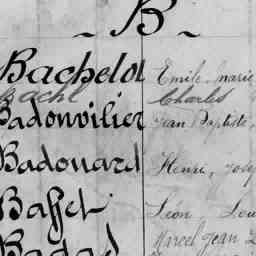 ~ B ~
Bachelot Emile, marie
Bachl Charles
Badonvilier Jean Baptiste,
Badouard Henri, Jose
Baffet Léon, Lou
Marcel Jean